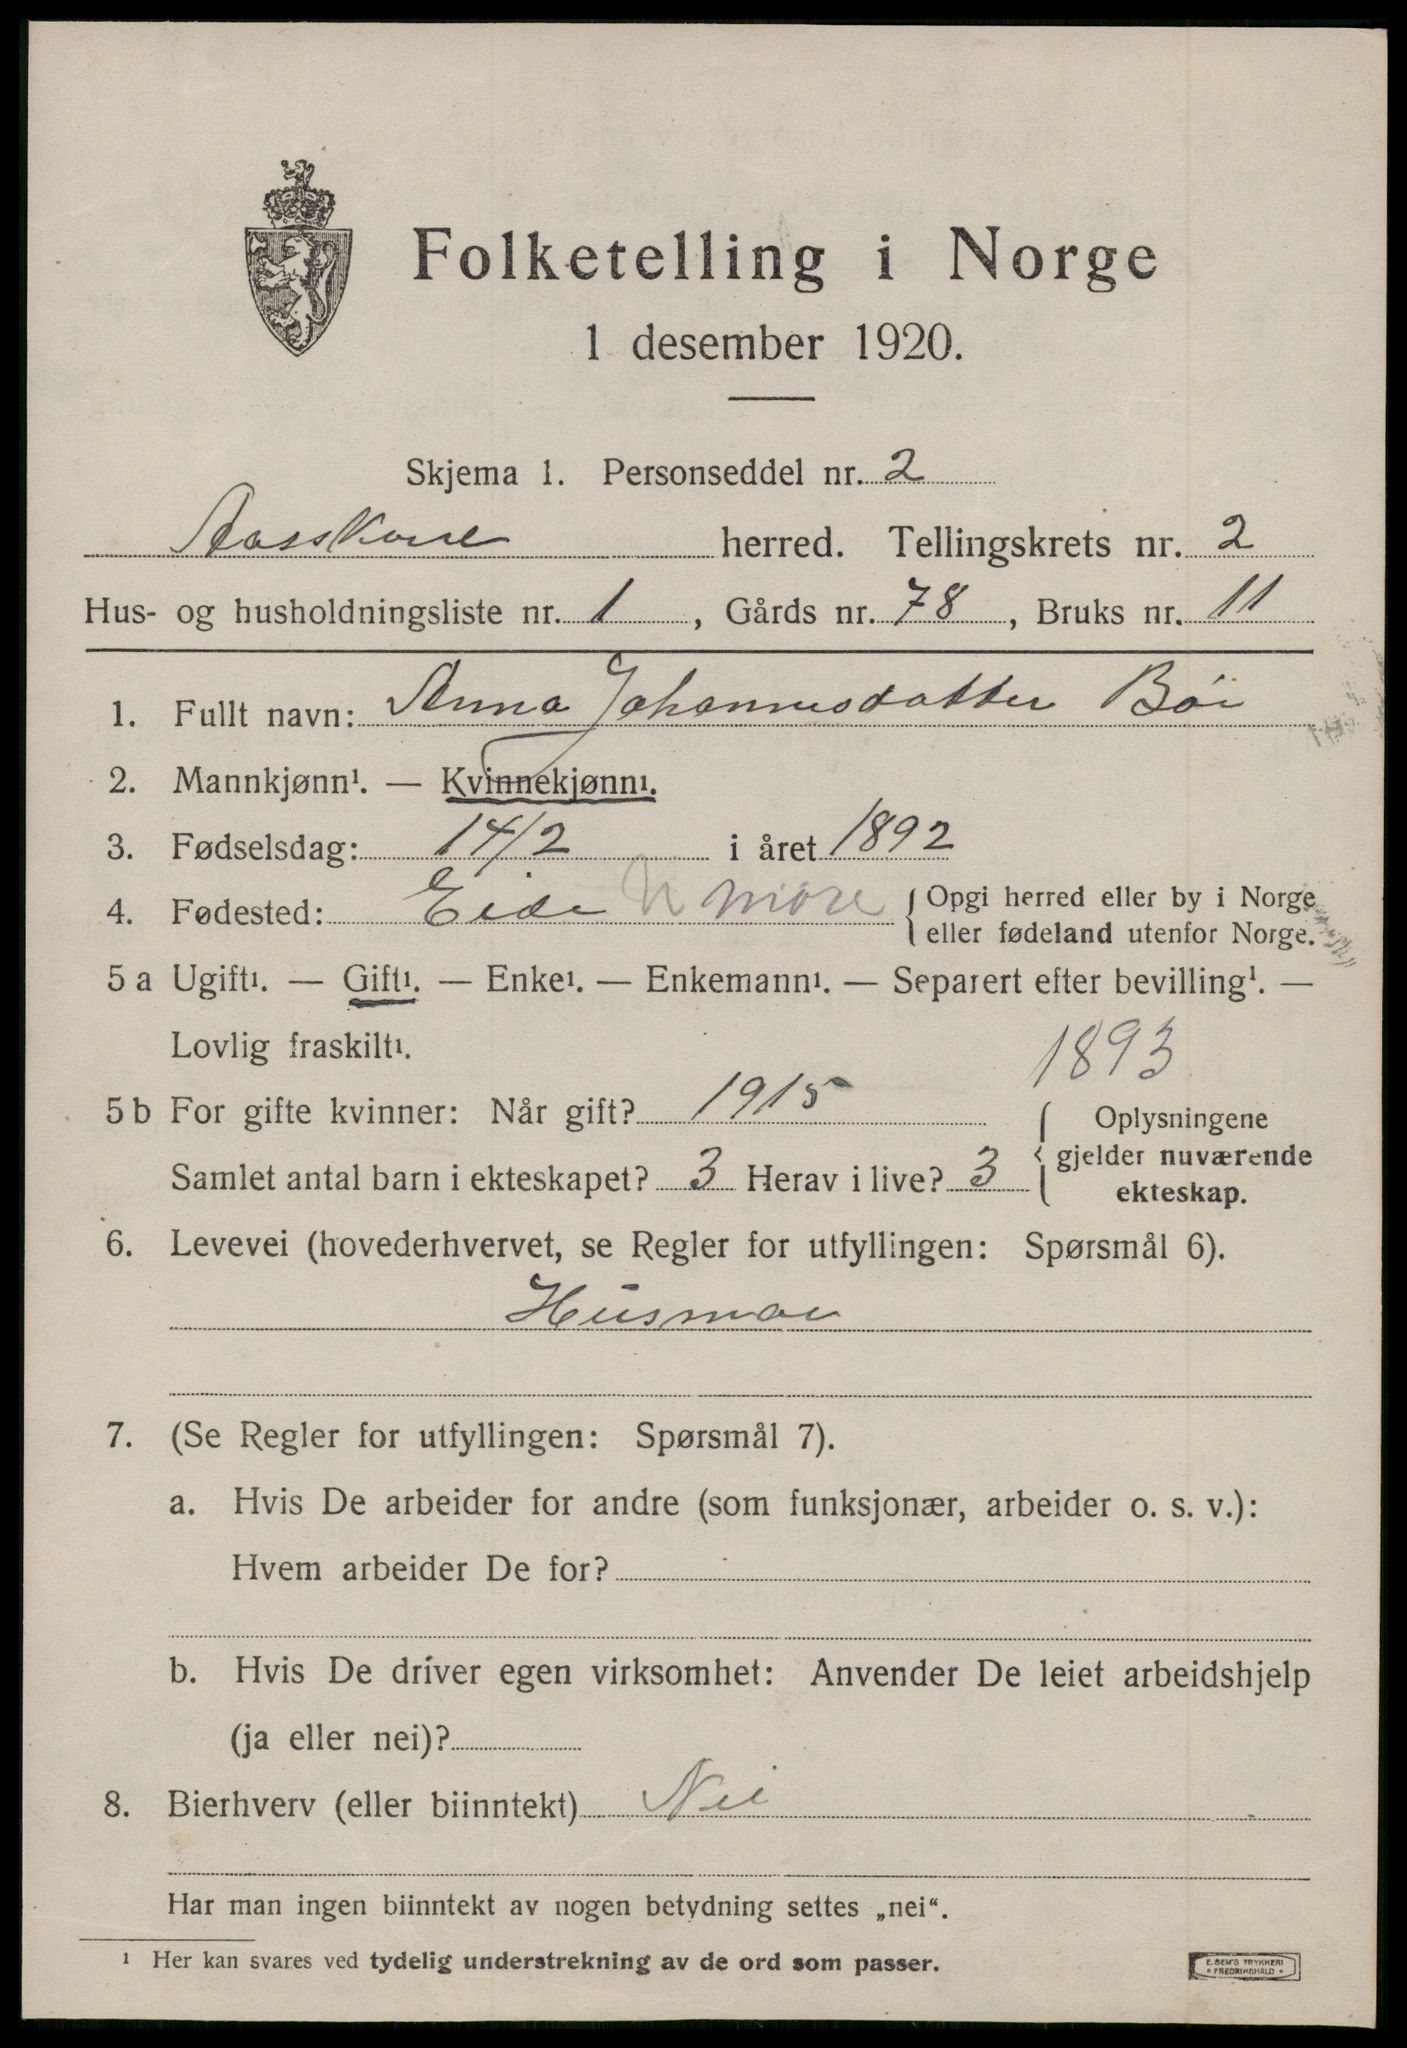 Folketelling i Norge
1 desember 1920.
Skjema 1. Personseddel nr. 2
Aasskard herred. Tellingskrets nr. 2
Hus- og husholdningsliste nr. 1, Gårds nr. 78, Bruks nr. 11
1. Fullt navn: Anna Johannesdatter Böe
2. Mannkjønn¹. — Kvinnekjønn¹.
3. Fødselsdag: 14/2 i året 1892
4. Fødested: Eide N Møre { Opgi herred eller by i Norge
eller fødeland utenfor Norge.
5 a Ugift¹. — Gift¹. — Enke¹. — Enkemann¹. — Separert efter bevilling¹. —
Lovlig fraskilt¹.
1893
5 b For gifte kvinner: Når gift? 1915
Samlet antal barn i ekteskapet? 3 Herav i live? 3
{ Oplysningene
gjelder nuværende
ekteskap.
6. Levevei (hovederhvervet, se Regler for utfyllingen: Spørsmål 6).
Husmor
7. (Se Regler for utfyllingen: Spørsmål 7).
a. Hvis De arbeider for andre (som funksjonær, arbeider o. s. v.):
Hvem arbeider De for?
b. Hvis De driver egen virksomhet: Anvender De leiet arbeidshjelp
(ja eller nei)?
8. Bierhverv (eller biinntekt) Nei
Har man ingen biinntekt av nogen betydning settes „nei“.
¹ Her kan svares ved tydelig understrekning av de ord som passer.
E. SEM'S TRYKKERI
FREDRIKSHALD